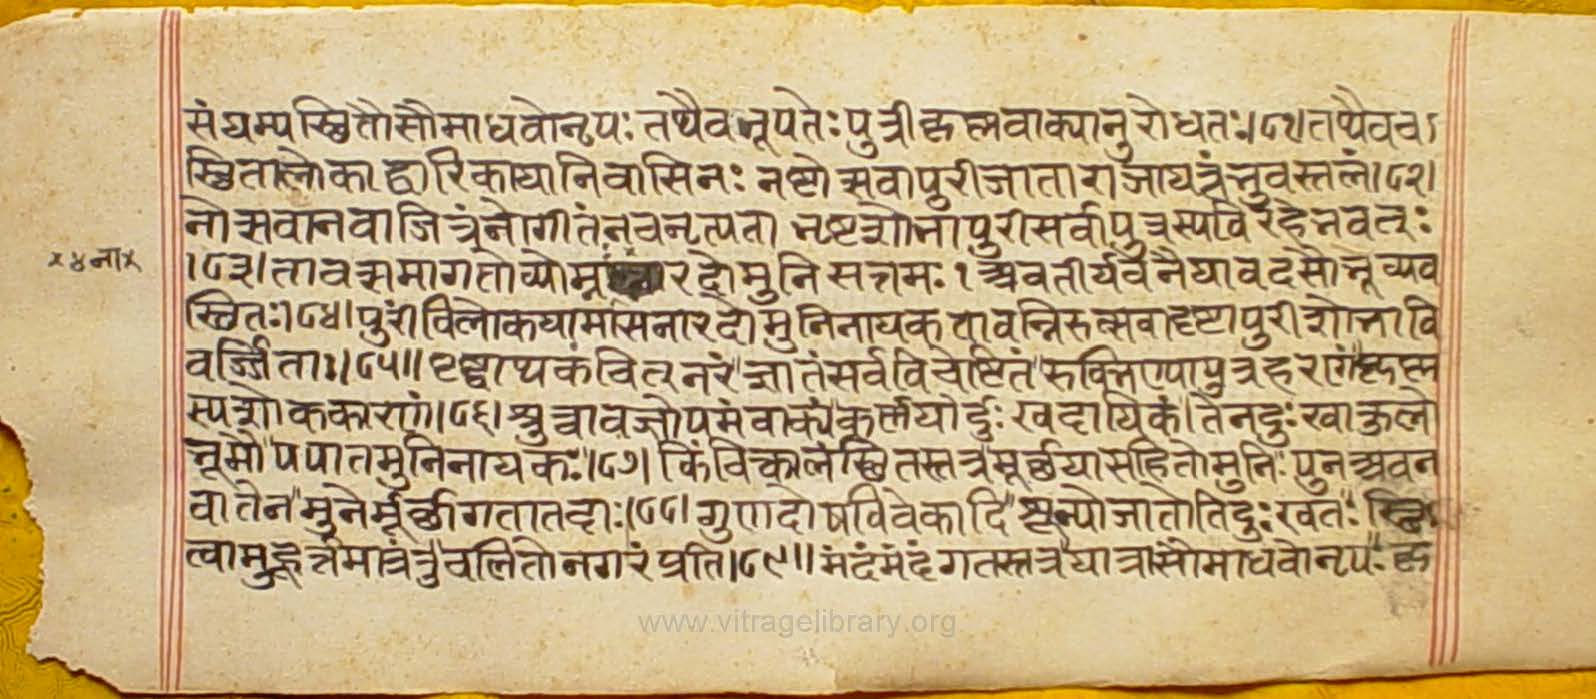 संद्यम्प स्थितौसौमाधवोनृपः तथैव भूपतेः पुत्री कृत्स्नवाक्यानुरोधतः।८१।तथैवव
स्थितालोका द्वारिकायानिवासिनः नष्टोत्सवापुरीजाता राजायत्रंनुवस्तलं।८२।
नोत्सवानवाजित्रंनोगीतंनचनृत्यता नष्टशोभापुरीसर्वापुत्रस्यविरहेभवत्
।८३।तावत्समागतोव्योम्नंनारदोमुनिसत्तमः । अवतीर्यवनैयावदसौभूव्यव
स्थितः।८४।पुरींविलोकयामासनारदोमुनिनायक तावन्निरुत्सवादृष्टापुरीशोभावि
वर्ज्जिताः।८५॥दृष्ट्वाथकंचित्नरं ज्ञातंसर्वविचेष्टितं रुक्मिण्यापुत्रहरणंकृष्ण
स्यशोककारणं।८६।श्रुत्वावज्रोपमंवाक्यं कर्णयोर्दुःखदायिकं।तेनदुःखाकुलो
भूमौ पपातमुनिनायकः।८७। किंचित्कालंस्थितस्तत्र मूर्छयासहितोमुनिः पुनश्चवन
वातेन मुनेर्मूर्छागतातदाः।८८।गुणदोषविवेकादि शून्योजातोतिदुःखतः स्थि
त्वामुहूर्त्तमात्रंतु चलितोनगरंप्रति।८९॥मंदंमंदंगतस्तत्र यात्रासौमाधवोनृपः कृ
x४नाx
www.vitragelibrary.org